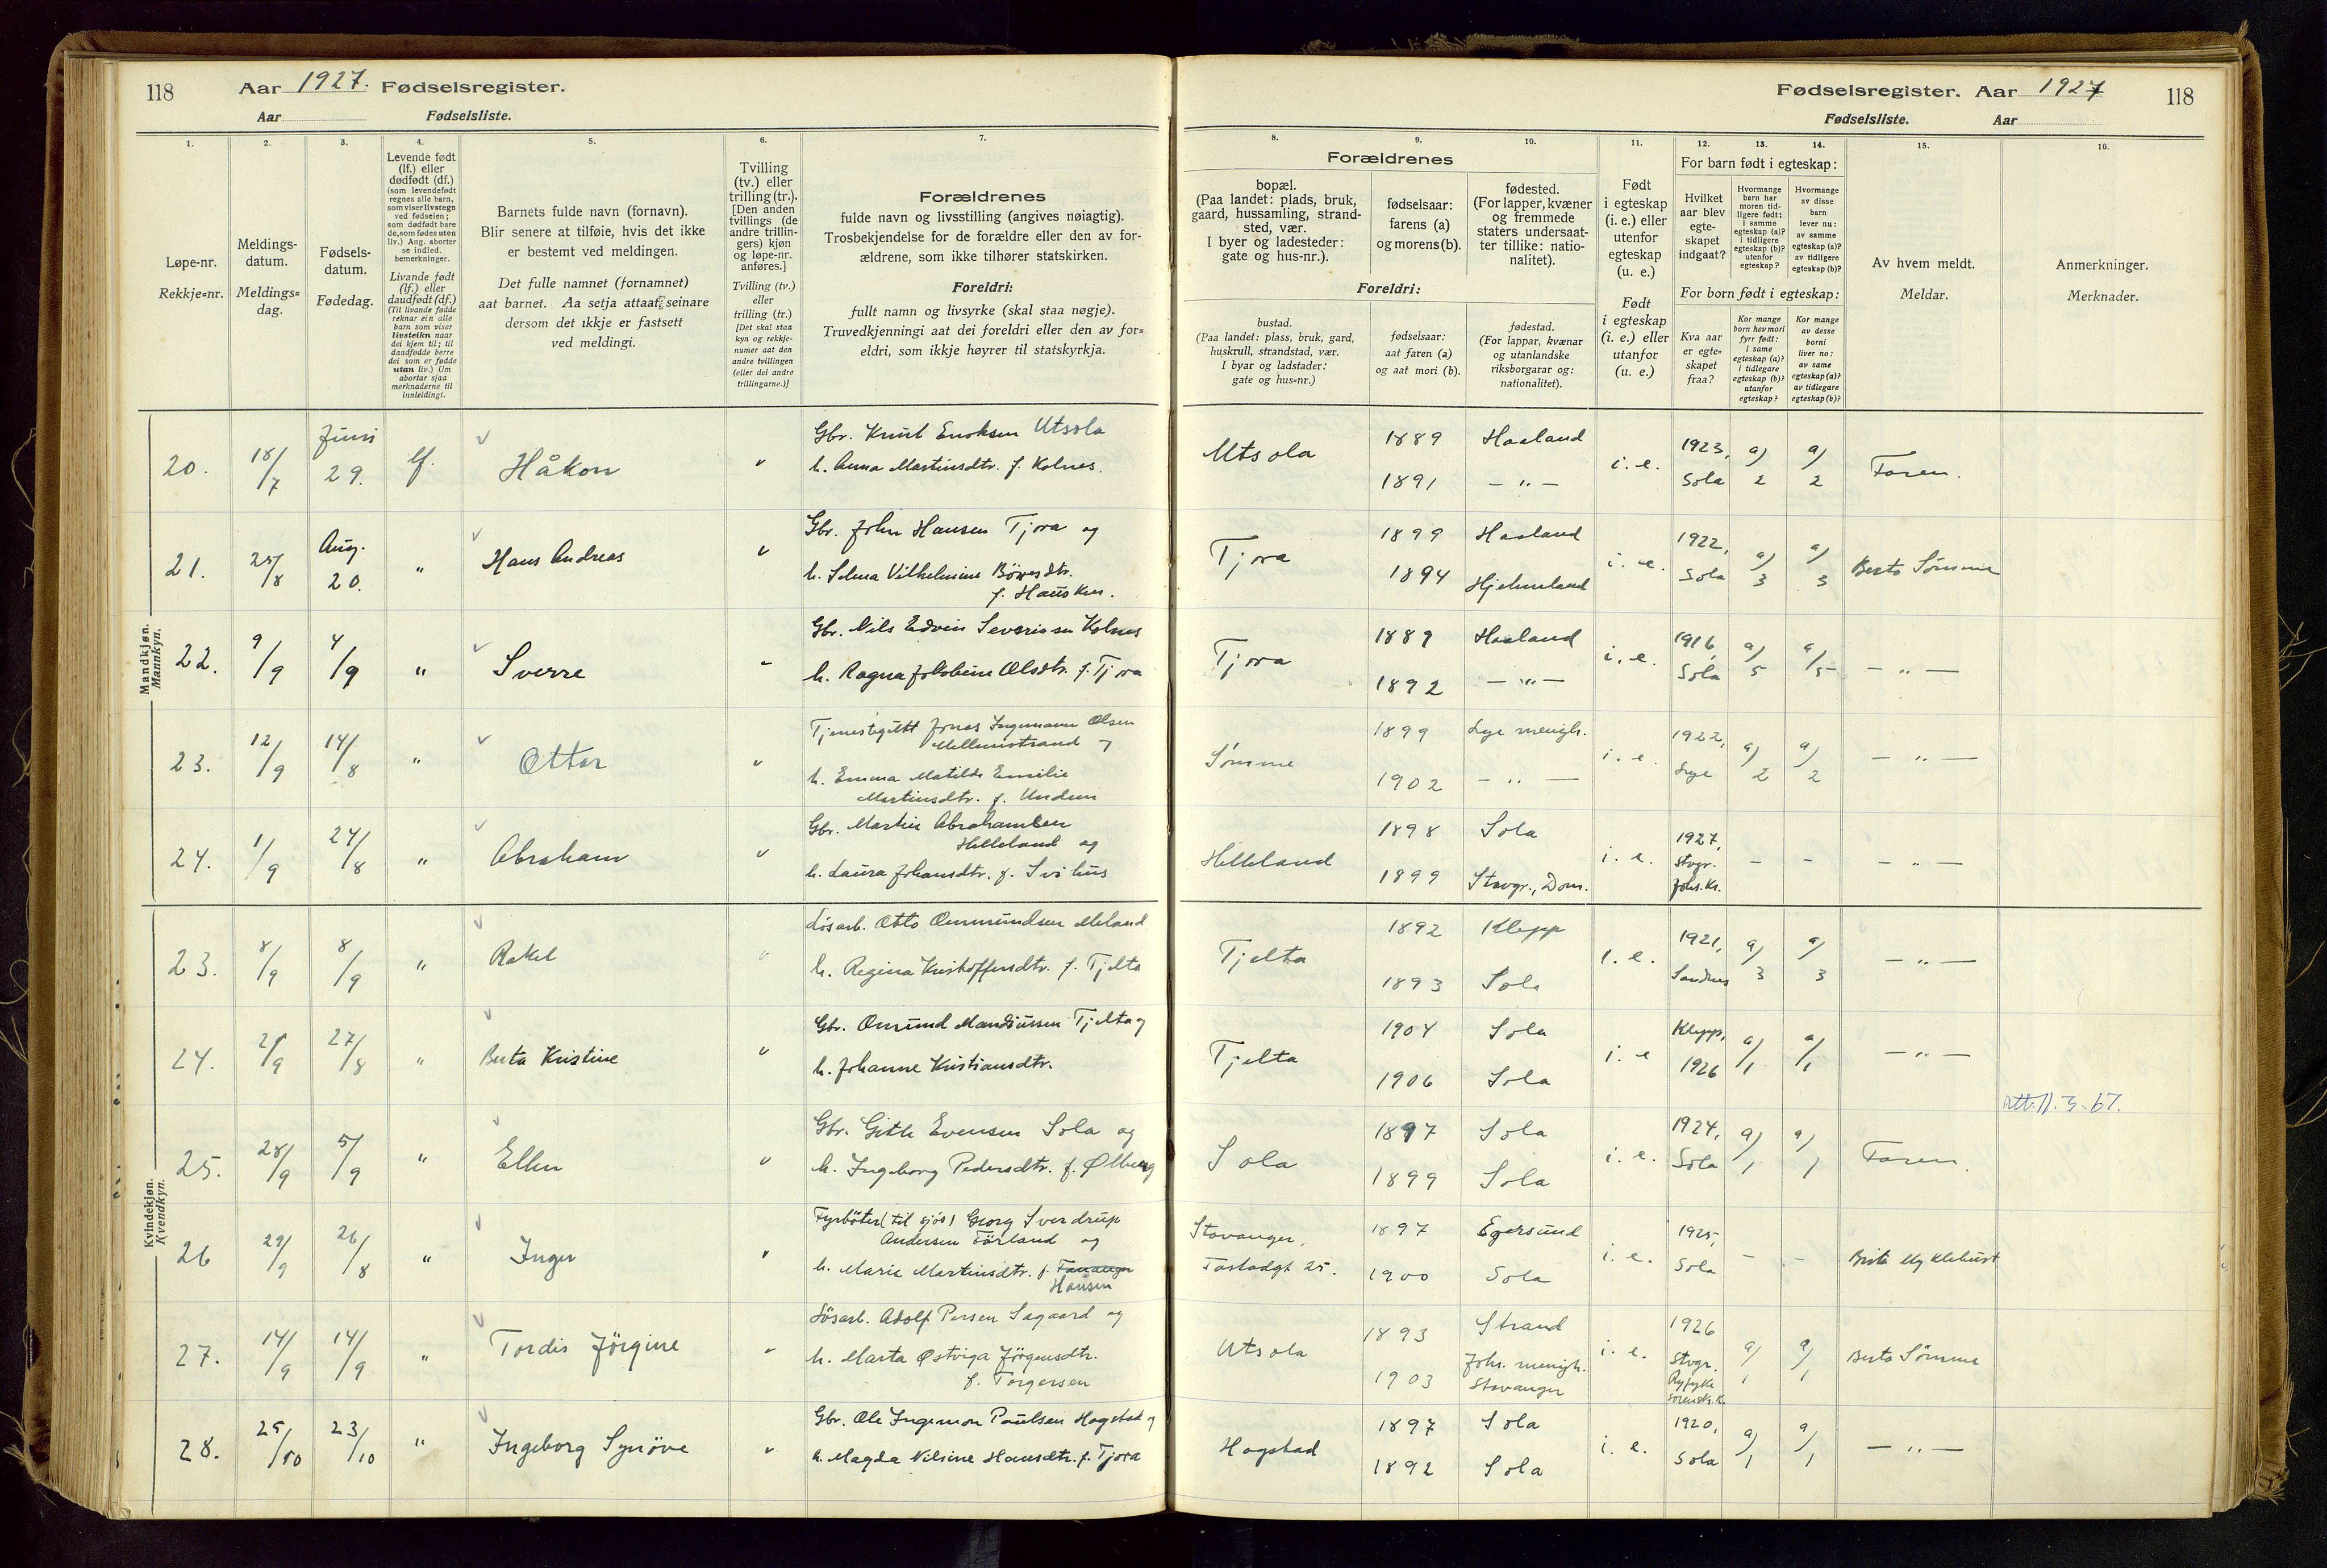 118 Aar 1927. Fødselsregister.
Aar Fødselsliste.
Fødselsregister. Aar 1927 118
Fødselsliste. Aar
1.
Løpe-nr.
Rekkje-nr.
2.
Meldings-
datum.
Meldings-
dag.
3.
Fødsels-
datum.
Fødedag.
4.
Levende født
(lf.) eller
dødfødt (df.)
(som levendefødt
regnes alle barn,
som viser livstegn
ved fødselen;
som dødfødt bare
de, som fødes uten
liv.) Ang. aborter
se indled.
bemerkninger.
Livande født
(lf.) eller
daudfødt (df.)
(Til livande fødde
reknar ein alle
barn som viser
livsteikn naar
dei kjem til; til
daudfødde berre
dei som er fødde
utan liv.) Um
abortar sjaa
merknaderne til
innleidingi.
5.
Barnets fulde navn (fornavn).
Blir senere at tilføie, hvis det ikke
er bestemt ved meldingen.
Det fulle namnet (fornamnet)
aat barnet. Aa setja attaat seinare
dersom det ikkje er fastsett
ved meldingi.
6.
Tvilling
(tv.) eller
trilling (tr.).
[Den anden
tvillings (de
andre trillin-
gers) kjøn
og løpe-nr.
anføres.]
Tvilling (tv.)
eller
trilling (tr.)
[Det skal staa
kyn og rekkje-
numer aat den
andre tvillingen
(eller dei andre
trillingarne.)]
7.
Forældrenes
fulde navn og livsstilling (angives nøiagtig).
Trosbekjendelse for de forældre eller den av for-
ældrene, som ikke tilhører statskirken.
Foreldri:
fullt namn og livsyrke (skal staa nøgje).
Truvedkjenningi aat dei foreldri eller den av for-
eldri, som ikkje høyrer til statskyrkja.
8.
Forældrenes
bopæl.
(Paa landet: plads, bruk,
gaard, hussamling, strand-
sted, vær.
I byer og ladesteder:
gate og hus-nr.).
Foreldri:
bustad.
(Paa landet: plass, bruk, gard,
huskrull, strandstad, vær.
I byar og ladstader:
gate og hus-nr.)
9.
fødselsaar:
farens (a)
og morens (b).
fødselsaar:
aat faren (a)
og aat mori (b).
10.
fødested.
(For lapper, kvæner
og fremmede
staters undersaat-
ter tillike: natio-
nalitet).
fødestad.
(For lappar, kvænar
og utanlandske
riksborgarar og:
nationalitet).
11.
Født
i egteskap
(i. e.) eller
utenfor
egteskap
(u. e.)
Født
i egteskap
(i. e.) eller
utanfor
(u. e.)
12. 13. 14.
For barn født i egteskap:
Hvilket
aar blev
egte-
skapet
indgaat?
Hvormange
barn har
moren tid-
ligere født:
i samme
egteskap (a)?
i tidligere
egteskap (b)?
utenfor
egteskap?
Hvormange
av disse
barn
lever nu:
av samme
egteskap (a)?
av tidligere
egteskap (b)?
For born født i egteskap:
Kva aar
er egte-
skapet
fraa?
Kor mange
born hev mori
fyrr født:
i same
egteskap (a)?
i tidlegare
egteskap (b)?
utanfor
egteskap?
Kor mange
av desse
borni
liver no:
av same
egteskap (a)?
av tidlegare
egteskap (b)?
15.
Av hvem meldt.
Meldar.
16.
Anmerkninger.
Merknader.
Mandkjøn.
Mannkyn.
20. 18/7 Juni 29. lf. Håkon " Gbr. Knut Enoksen Utsola
h. Anna Martinsdtr. f. Kolnes.
Utsola 1889 Haaland i. e. 1923, Sola a) 2 a) 2 Faren.
1891 — " —
21. 25/8 Aug. 20. " Hans Andreas " Gbr. John Hansen Tjora og
h. Selma Vilhelmine Børresdtr.
f. Hausken.
Tjora 1899 Haaland i. e. 1922, Sola a) 3 a) 3 Berta Sømme
1894 Hjelmeland
22. 9/9 4/9 " Sverre " Gbr. Nils Edvin Severinsen Kolnes
h. Ragna Jakobine Olsdtr. f. Tjora
Tjora 1889 Haaland i. e. 1916, Sola a) 5 a/5 — " —
1892 — " —
23. 12/9 14/8 " Ottar " Tjenestegutt Jonas Ingemann Olsen
Mellemstrand og
h. Emma Matilde Emilie
Martinsdtr. f. Undem
Sømme 1899 Lye menigh. i. e. 1922, Lye a) 2 a) 2 — " —
1902 — " —
24. 1/9 24/8 " Abraham " Gbr. Martin Abrahamsen
Helleland og
h. Laura Johansdtr. f. Svihus
Helleland 1898 Sola i. e. 1927, Stvgr. Joh. k. - - — " —
1899 Stavgr., Dom.
Kvindekjøn.
Kvendkyn.
23. 8/9 8/9 " Rakel " Løsarb. Otto Ommundsen Meland
h. Regina Kristoffersdtr. f. Tjelta
Tjelta 1892 Klepp i. e. 1921, Sandnes a) 3 a) 3 — " —
1893 Sola
24. 27/8 " Berta Kristine " Gbr. Omund Mandiussen Tjelta og
h. Johanne Kristiansdtr.
Tjelta 1904 Sola i. e Klepp, 1926 a/1 a/1 — " —
1906 Sola
Att. 11.3-67.
25. 28/9 5/9 " Ellen " Gbr. Gitle Evensen Sola og
h. Ingeborg Pedersdtr. f. Ølberg
Sola 1897 Sola i. e. 1924, Sola a) 1 a) 1 Faren.
1899 Sola
26 29/9 26/8 " Inger " Fyrbøter (til sjøs) Georg Sverdrup
Andersen Førland og
h. Marie Martinsdtr. f. Tananger
Hansen
Stavanger, 1897 Egersund i. e. 1925, Sola - - Berta Myklebust
Tastadgt. 25. 1900 Sola
27. 14/9 14/9 " Tordis Jörgine " Løsarb. Adolf Persen Sagaard og
h. Marta Østviga Jörgensdtr.
f. Torgersen
Utsola 1893 Strand i. e. 1926 Stvgr. Ryfylke sorenskr.k. a/1 a/1 Berta Sømme
1903 Joh. menigh. Stavanger
28. 25/10 23/10 " Ingeborg Synöve " Gbr. Ole Ingemon Paulsen Hogstad og
h. Magda Nilsine Hansdtr. f. Tjora
Hogstad 1897 Sola i. e. 1920, Sola a/1 a/1 — " —
1892 Sola